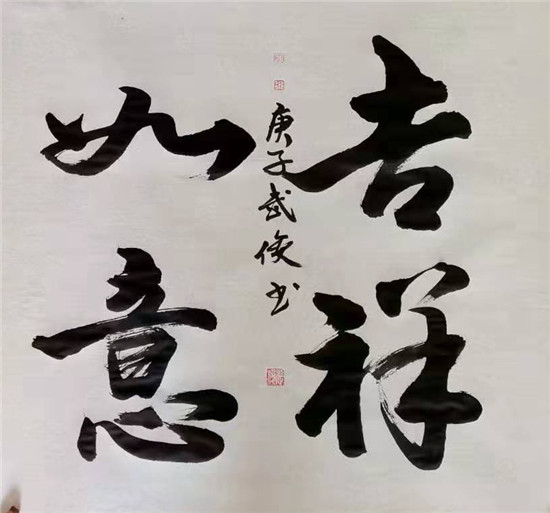 吉祥
如意
庚子武俊书